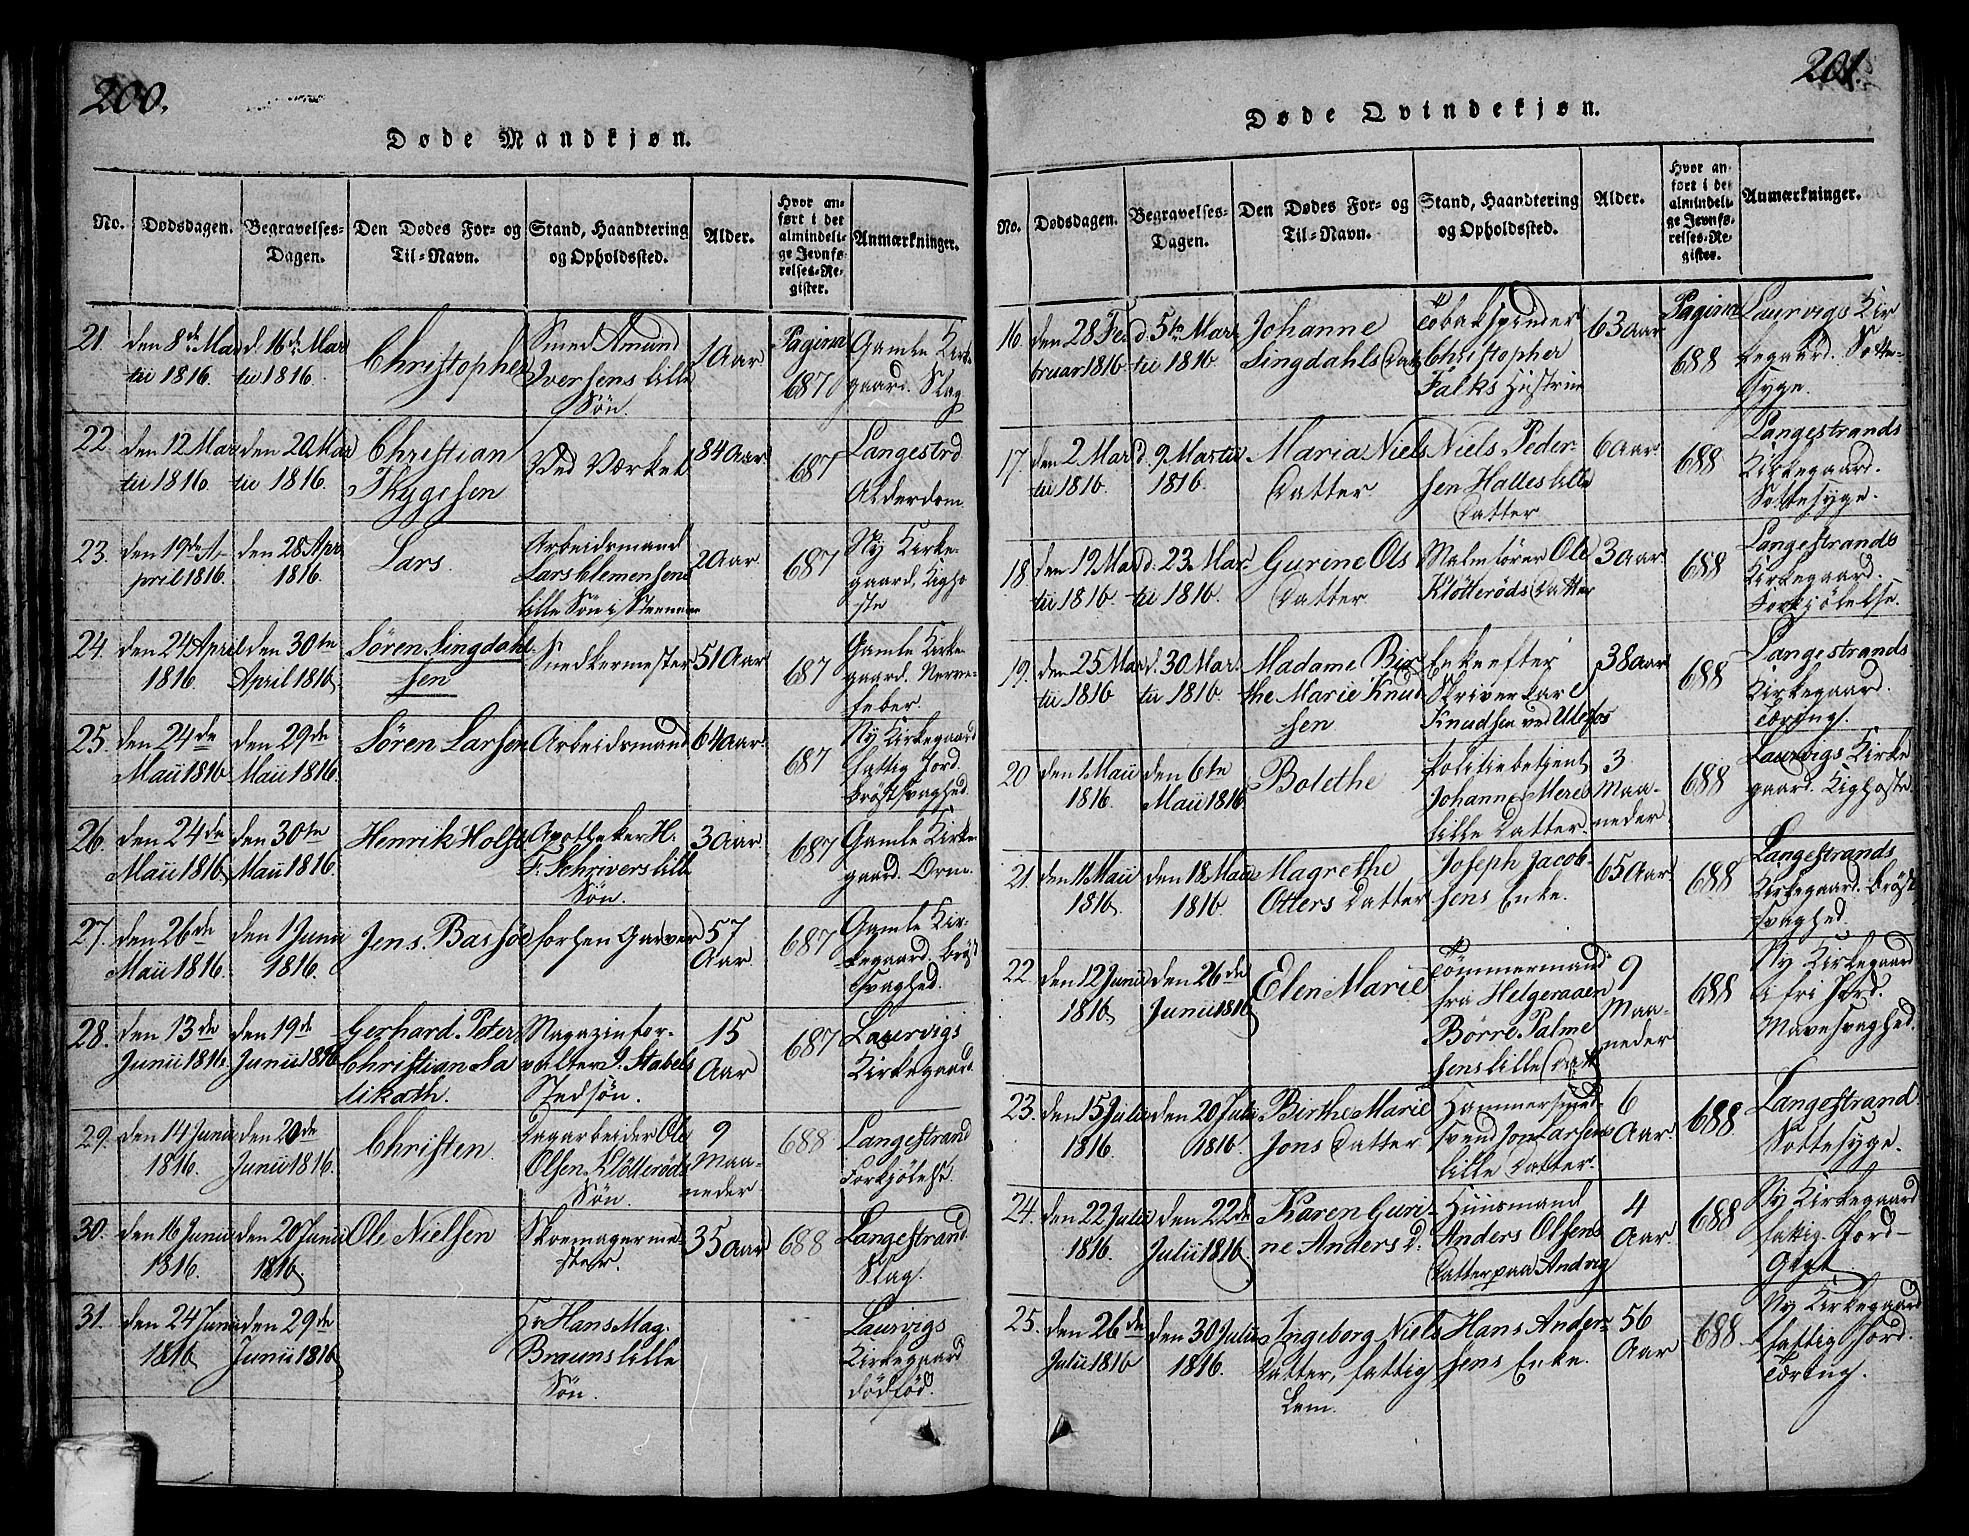 200.
Døde Mandkjøn.
No. Dødsdagen. Begravelses-Dagen. Den Dødes For- og Til-Navn. Stand, Haandtering og Opholdssted. Alder. Hvor anført i det almindelige Jevnførelses-Register. Anmærkninger.
21. den 8de Martii 1816. d. 16de Martii 1816. Christopher Smed Amund Iversens lille Søn 1 Aar Pagina 687 Gamle Kirkegaard. Slag
22. den 12 Martii 1816. den 20 Martii 1816. Christian Thygesen Ved Værket 84 Aar 687 Langestrd Alderdom
23. den 19de April 1816. den 28 Apr. 1816. Lars. Arbeidsmand Lars Clemensens lille Søn i Steenene 2 Aar 687 Ny Kirkegaard, Kighoste
24. den 24 April 1816. den 30te April 1816. Søren Lingdahlsen Snedkermester 51 Aar 687 Gamle Kirkegaard. Nervefeber.
25. den 24de Maii 1816 den 29de Maii 1816. Søren Larsen Arbeidsmand 64 Aar. 687 Ny Kirkegaard fattig Jord. Brøstsvaghed.
26. den 24de Maii 1816 den 30te Maii 1816. Henrik Holst Apotheker H. F. Schrivers lille Søn. 3 Aar 687 Gamle Kirkegaard. Orm.
27. den 26de Maii 1816. den 1 Junii 1816. Jens Bassøe forhen Garver 57 Aar 687 Gamle Kirkegaard. Brøstsvaghed.
28. den 13de Junii 1816. den 19de Junii 1816 Gerhard Peter Christian Salikath. Magazinforvalter J. Stabels Stedsøn. 15 Aar 687 Laurvigs Kirkegaard
29. den 14 Junii 1816. den 20de Junii 1816. Christen Dagarbeider Ole Olsen Kløtterøds Søn. 9 Maaneder 688 Langestrand Forkjølelse.
30. den 16 Junii 1816. den 20 Junii 1816 Ole Nielsen Skoemagermester. 35 Aar 688 Langestrand. Slag.
31. den 24 Junii 1816 den 29de Junii 1816 Hr Hans Mag. Brauns lille Søn. Laurvigs Kirkegaard dødfød.
201.
Døde Qvindekjøn.
No. Dødsdagen. Begravelses-Dagen. Den Dødes For- og Til-Navn. Stand, Haandtering og Opholdssted. Alder. Hvor anført i det almindelige Jevnførelses-Register. Anmærkninger.
16. den 28 Februar 1816 d. 5te Martii 1816 Johanne Lingdahls Datt Tobakspinder Christopher Falks Hustrue 63 Aar Pagina 688 Laurvigs Kirkegaard. Sottesyge.
17. den 2 Martii 1816. d. 9 Martii 1816. Maria Niels Datter Niels Pedersen Halles lille Datter 6 Aar 688 Langestrands Kirkegaard. Sottesyge.
18 den 19 Martii 1816. d. 23. Martii 1816. Gurine Ols Datter Malmfører Ole Kløtterøds Datter 3 Aar 688 Langestrands Kirkegaard. Forkjølelse.
19. den 25 Martii 1816 d. 30 Martii 1816. Madame Birthe Marie Knudsen Enke efter Skriverkarl Knudsen ved Ulefos 38 Aar 688 Langestrands Kirkegaard. Tæring.
20 den 1 Maii 1816. den 6te Maii 1816 Bolethe Politiebetjent Johannes Meres lille Datter. 3 Maaneder. 688 Laurvigs Kirkegaard. Kighoste
21. den 11 Maii 1816. den 18 Maii 1816. Magrethe Otters Datter Joseph Jacobsens Enke. 65 Aar. 688 Langestrands Kirkegaard. Brøstsvaghed.
22. den 12 Junii 1816 den 26de Junii 1816 Elen Marie Tømmermand fra Helgeraaen Børre Palmesens lille Datt 9 Maaneder 688 Ny Kirkegaard i fri Jord. Mavesvaghed.
23. den 15 Julii 1816. den 20 Julii 1816. Birthe Marie Jons Datter Hammersmed svend Jon Larsens lille Datter. 6 Aar. 688 Langestrand Sottesyge.
24. den 22 Julii 1816. den 22de Julii 1816 Karen Gurine Anders D. Huusmand Anders Olsens Datter paa Andvig 4 Aar. 688 Ny Kirkegaard fattig Jord Gigt
25. den 26de Julii 1816 den 30 Julii 1816. Ingeborg Niels Datter, fattig Lem. Hans Andersens Enke. 56 Aar 688 Ny Kirkegaard fattig Jord. Tæring.